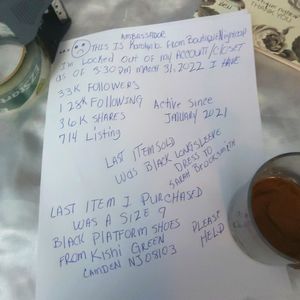 AMBASSADOR
THIS IS
From Boutique
I'm LOCKED OUT OF MY ACCOUNT/CLOSET
AS OF 5:30 pm MARCH 31, 2022 I HAVE
33K FOLLOWERS
128K FOLLOWING
36K SHARES
714 Listing
Active Since
JANUARY 2021
LAST ITEM SOLD
WAS BLACK LONG SLEEVE
DRESS TO
SARAH
LAST ITEM I PURCHASED
WAS A SIZE 9
BLACK PLATFORM SHOES
FROM KISHI GREEN
CAMDEN NJ 08103
PLEASE
HELP
THANK YOU